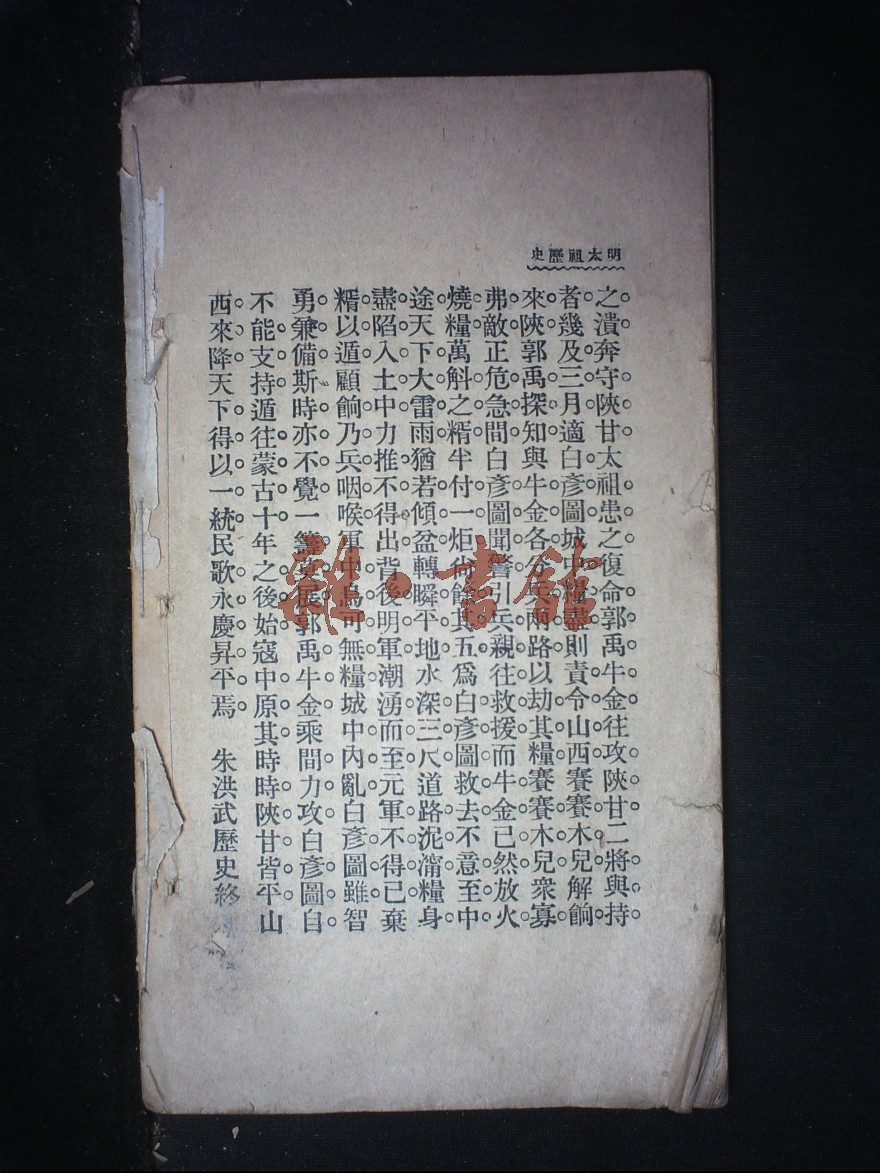 明太祖歷史
之潰奔守陜甘太祖患之復命郭禹牛金往攻陜甘二將與持
者幾及三月適白彥圖城中糧盡則責令山西賽賽木兒解餉
來陜郭禹探知與牛金各分兵兩路以劫其糧賽賽木兒衆寡
弗敵正危急間白彥圖聞警引兵親往救援而牛金已然放火
燒糧萬斛之糈半付一炬尚餘其五爲白彥圖救去不意至中
途天下大雷雨猶若傾盆轉瞬平地水深三尺道路泥濘糧身
盡陷入土中力推不得出背後明軍潮湧而至元軍不得已棄
糈以遁顧餉乃兵咽喉軍中烏可無糧城中內亂白彥圖雖智
勇兼備斯時亦不覺一籌莫展郭禹牛金乘間力攻白彥圖自
不能支持遁往蒙古十年之後始寇中原其時時陜甘皆平山
西來降天下得以一統民歌永慶昇平焉　朱洪武歷史終
雜·書館